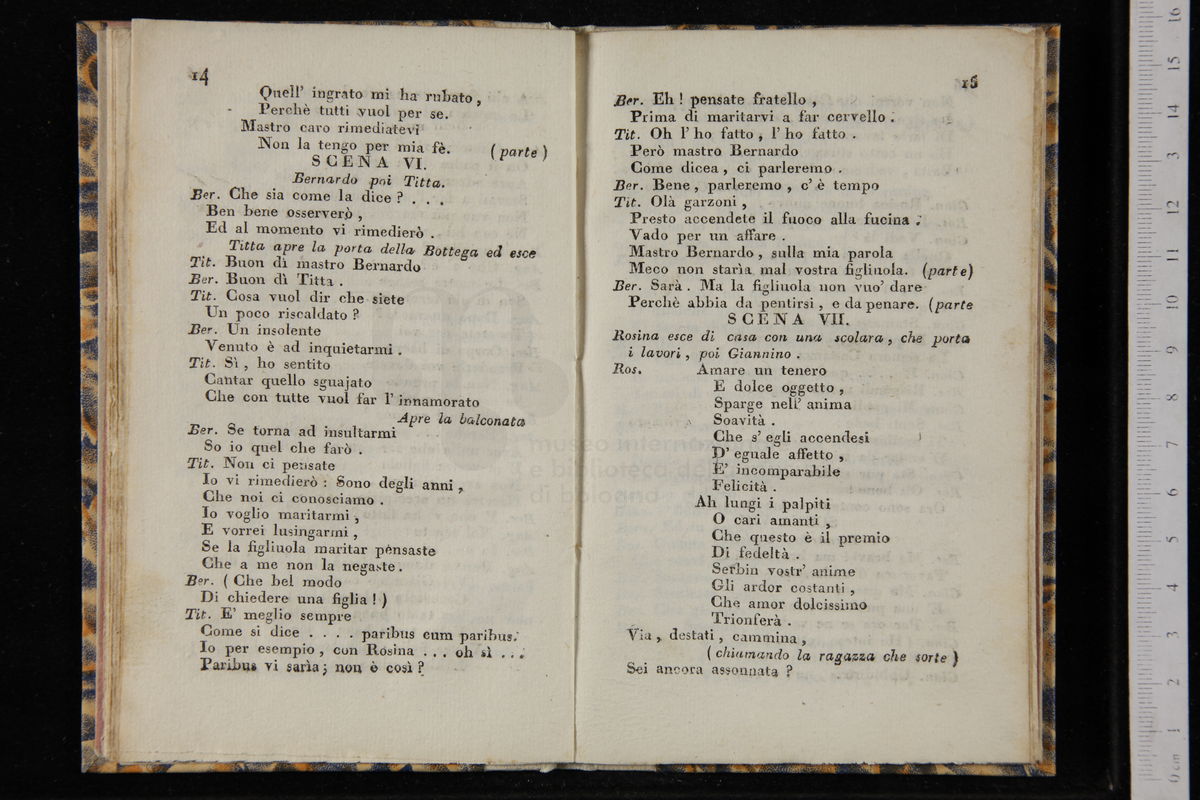 14
Quell' ingrato mi ha rubato,
Perchè tutti vuol per se.
Mastro caro rimediatevi
Non la tengo per mia fè. (parte)
SCENA VI.
Bernardo poi Titta.
Ber. Che sia come la dice? . . .
Ben bene osserverò,
Ed al momento vi rimedierò.
Titta apre la porta della Bottega ed esce
Tit. Buon dì mastro Bernardo
Ber. Buon dì Titta.
Tit. Cosa vuol dir che siete
Un poco riscaldato?
Ber. Un insolente
Venuto è ad inquietarmi.
Tit. Sì, ho sentito
Cantar quello sguajato
Che con tutte vuol far l' innamorato
Apre la balconata
Ber. Se torna ad insultarmi
So io quel che farò.
Tit. Non ci pensate
Io vi rimedierò: Sono degli anni,
Che noi ci conosciamo.
Io voglio maritarmi,
E vorrei lusingarmi,
Se la figliuola maritar pensaste
Che a me non la negaste.
Ber. (Che bel modo
Di chiedere una figlia!)
Tit. E' meglio sempre
Come si dice . . . . paribus cum paribus.
Io per esempio, con Rosina . . . oh sì . . .
Paribus vi sarìa; non è così?
15
Ber. Eh! pensate fratello,
Prima di maritarvi a far cervello.
Tit. Oh l' ho fatto, l' ho fatto.
Però mastro Bernardo
Come dicea, ci parleremo.
Ber. Bene, parleremo, c' è tempo
Tit. Olà garzoni,
Presto accendete il fuoco alla fucina.
Vado per un affare.
Mastro Bernardo, sulla mia parola
Meco non starìa mal vostra figliuola. (parte)
Ber. Sarà. Ma la figliuola non vuo' dare
Perchè abbia da pentirsi, e da penare. (parte
SCENA VII.
Rosina esce di casa con una scolara, che porta
i lavori, poi Giannino.
Ros. Amare un tenero
E dolce oggetto,
Sparge nell' anima
Soavità.
Che s' egli accendesi
D' eguale affetto,
E' incomparabile
Felicità.
Ah lungi i palpiti
O cari amanti,
Che questo è il premio
Di fedeltà.
Serbin vostr' anime
Gli ardor costanti,
Che amor dolcissimo
Trionferà.
Via, destati, cammina,
(chiamando la ragazza che sorte)
Sei ancora assonnata?
museo internaz
e biblioteca de
di bologna
16
15
14
13
12
11
10
9
8
7
6
5
4
3
2
1
0 cm